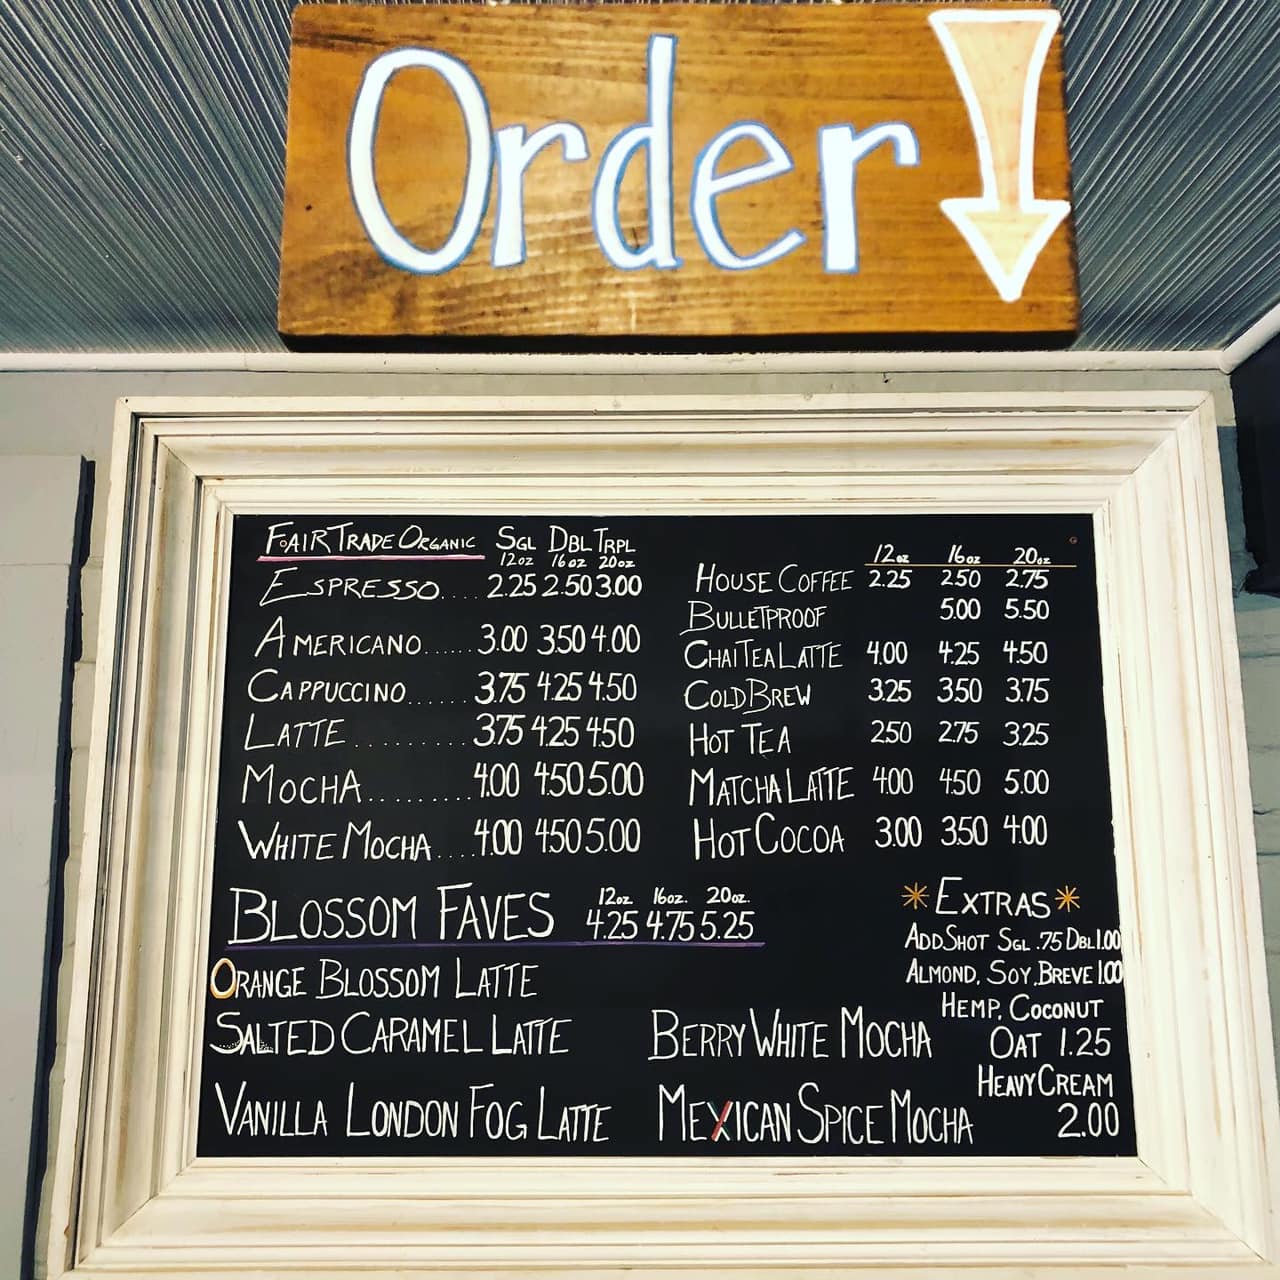 Order
FAIR TRADE ORGANIC SGL DBL TRPL
12oz 16oz 20oz
ESPRESSO.... 2.25 2.50 3.00
AMERICANO...... 3.00 3.50 4.00
CAPPUCCINO...... 3.75 4.25 4.50
LATTE.......... 3.75 4.25 4.50
MOCHA......... 4.00 4.50 5.00
WHITE MOCHA.... 4.00 4.50 5.00
12oz 16oz 20oz
HOUSE COFFEE 2.25 2.50 2.75
BULLETPROOF 5.00 5.50
CHAI TEA LATTE 4.00 4.25 4.50
COLD BREW 3.25 3.50 3.75
HOT TEA 2.50 2.75 3.25
MATCHA LATTE 4.00 4.50 5.00
HOT COCOA 3.00 3.50 4.00
12oz. 16oz. 20oz.
BLOSSOM FAVES 4.25 4.75 5.25
ORANGE BLOSSOM LATTE
SALTED CARAMEL LATTE
BERRY WHITE MOCHA
VANILLA LONDON FOG LATTE
MEXICAN SPICE MOCHA
*EXTRAS*
ADD SHOT SGL .75 DBL 1.00
ALMOND, SOY, BREVE 1.00
HEMP, COCONUT
OAT 1.25
HEAVY CREAM
2.00